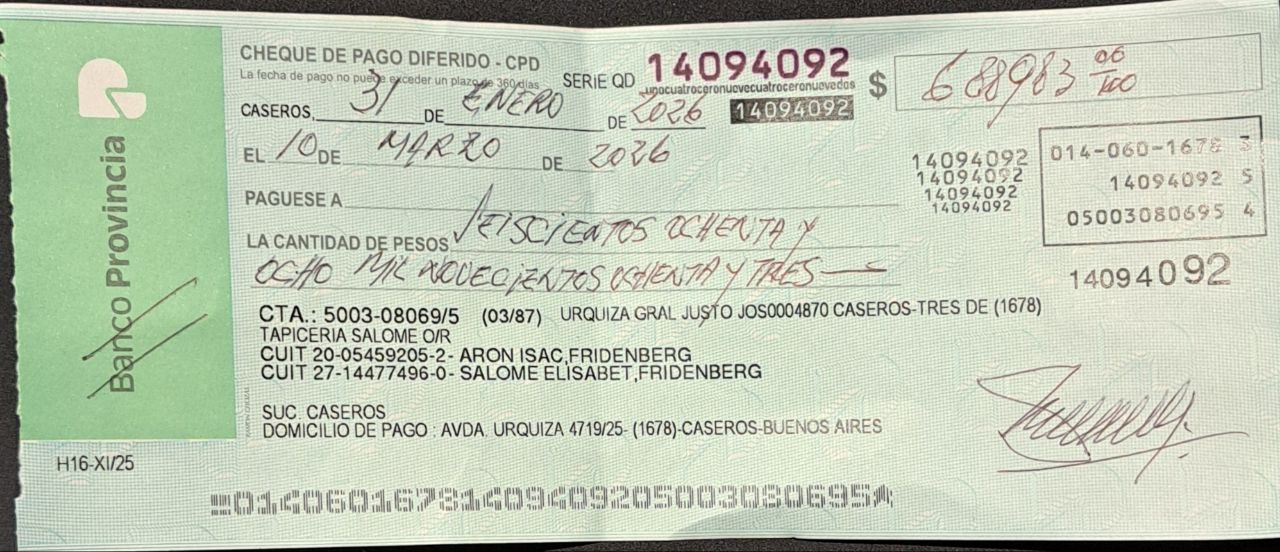 Banco Provincia
CHEQUE DE PAGO DIFERIDO - CPD
La fecha de pago no puede exceder un plazo de 360 días
SERIE QD 14094092
unocuatroceronuevecuatroceronuevedos
14094092
$ 688983 00/100
CASEROS, 31 DE ENERO DE 2026
EL 10 DE MARZO DE 2026
14094092
14094092
14094092
14094092
014-060-1678 3
14094092 5
05003080695 4
PAGUESE A
LA CANTIDAD DE PESOS SEISCIENTOS OCHENTA Y
OCHO MIL NOVECIENTOS OCHENTA Y TRES
14094092
CTA.: 5003-08069/5 (03/87) URQUIZA GRAL JUSTO JOS0004870 CASEROS-TRES DE (1678)
TAPICERIA SALOME O/R
CUIT 20-05459205-2- ARON ISAC,FRIDENBERG
CUIT 27-14477496-0- SALOME ELISABET,FRIDENBERG
SUC. CASEROS
DOMICILIO DE PAGO : AVDA. URQUIZA 4719/25- (1678)-CASEROS-BUENOS AIRES
H16-XI/25
01406016781409409205003080695